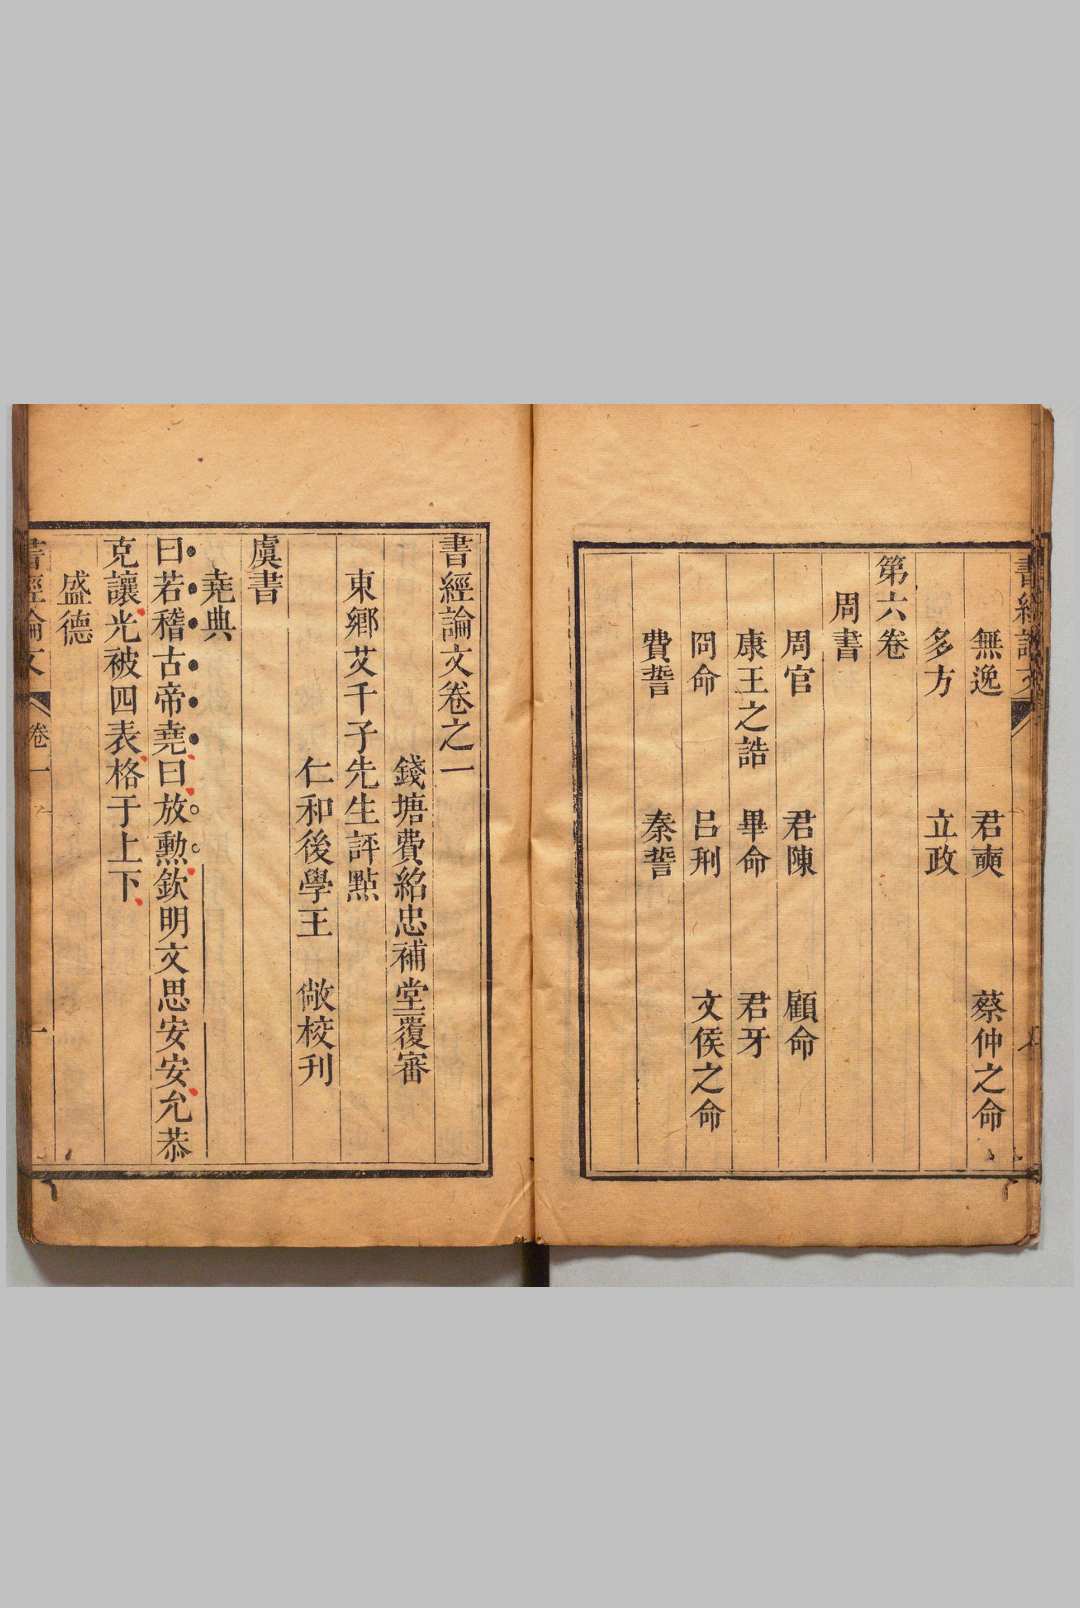 無逸 君奭 蔡仲之命
多方 立政
第六卷
周書
周官 君陳 顧命
康王之誥 畢命 君牙
冏命 呂刑 文侯之命
費誓 秦誓
書經論文卷之一
錢塘費紹忠補堂覆審
東鄉艾千子先生評點
仁和後學王 敞校刊
虞書
堯典
曰若稽古帝堯曰放勲欽明文思安安允恭
克讓光被四表格于上下
盛德
書經論文 卷一 一